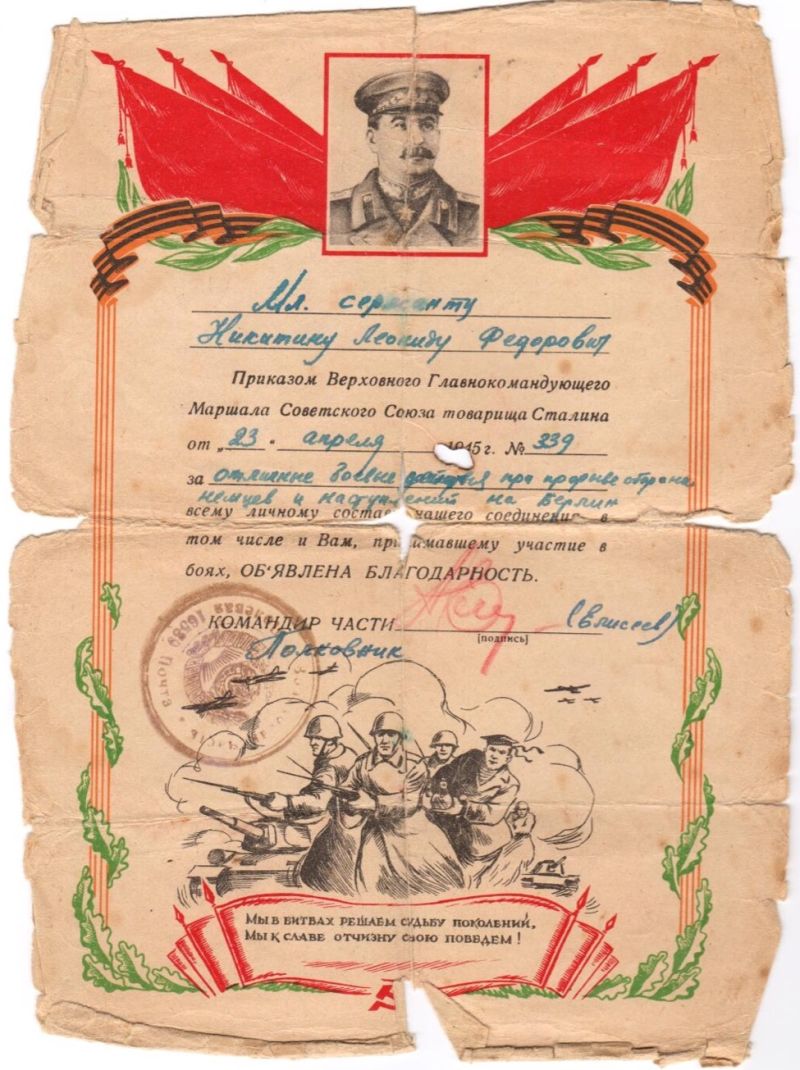 Мл. сержанту
Никитину Леониду Федорович
Приказом Верховного Главнокомандующего
Маршала Советского Союза товарища Сталина
от „23“ апреля 1945 г. № 339
за отличные боевые действия при прорыве обороны
немцев и наступлений на Берлин
всему личному составу нашего соединения, в
том числе и Вам, принимавшему участие в
боях, ОБ'ЯВЛЕНА БЛАГОДАРНОСТЬ.
КОМАНДИР ЧАСТИ (Елисеев)
[подпись]
Полковник
Полевая Почта 16639
МЫ В БИТВАХ РЕШАЕМ СУДЬБУ ПОКОЛЕНИЙ,
МЫ К СЛАВЕ ОТЧИЗНУ СВОЮ ПОВЕДЕМ!